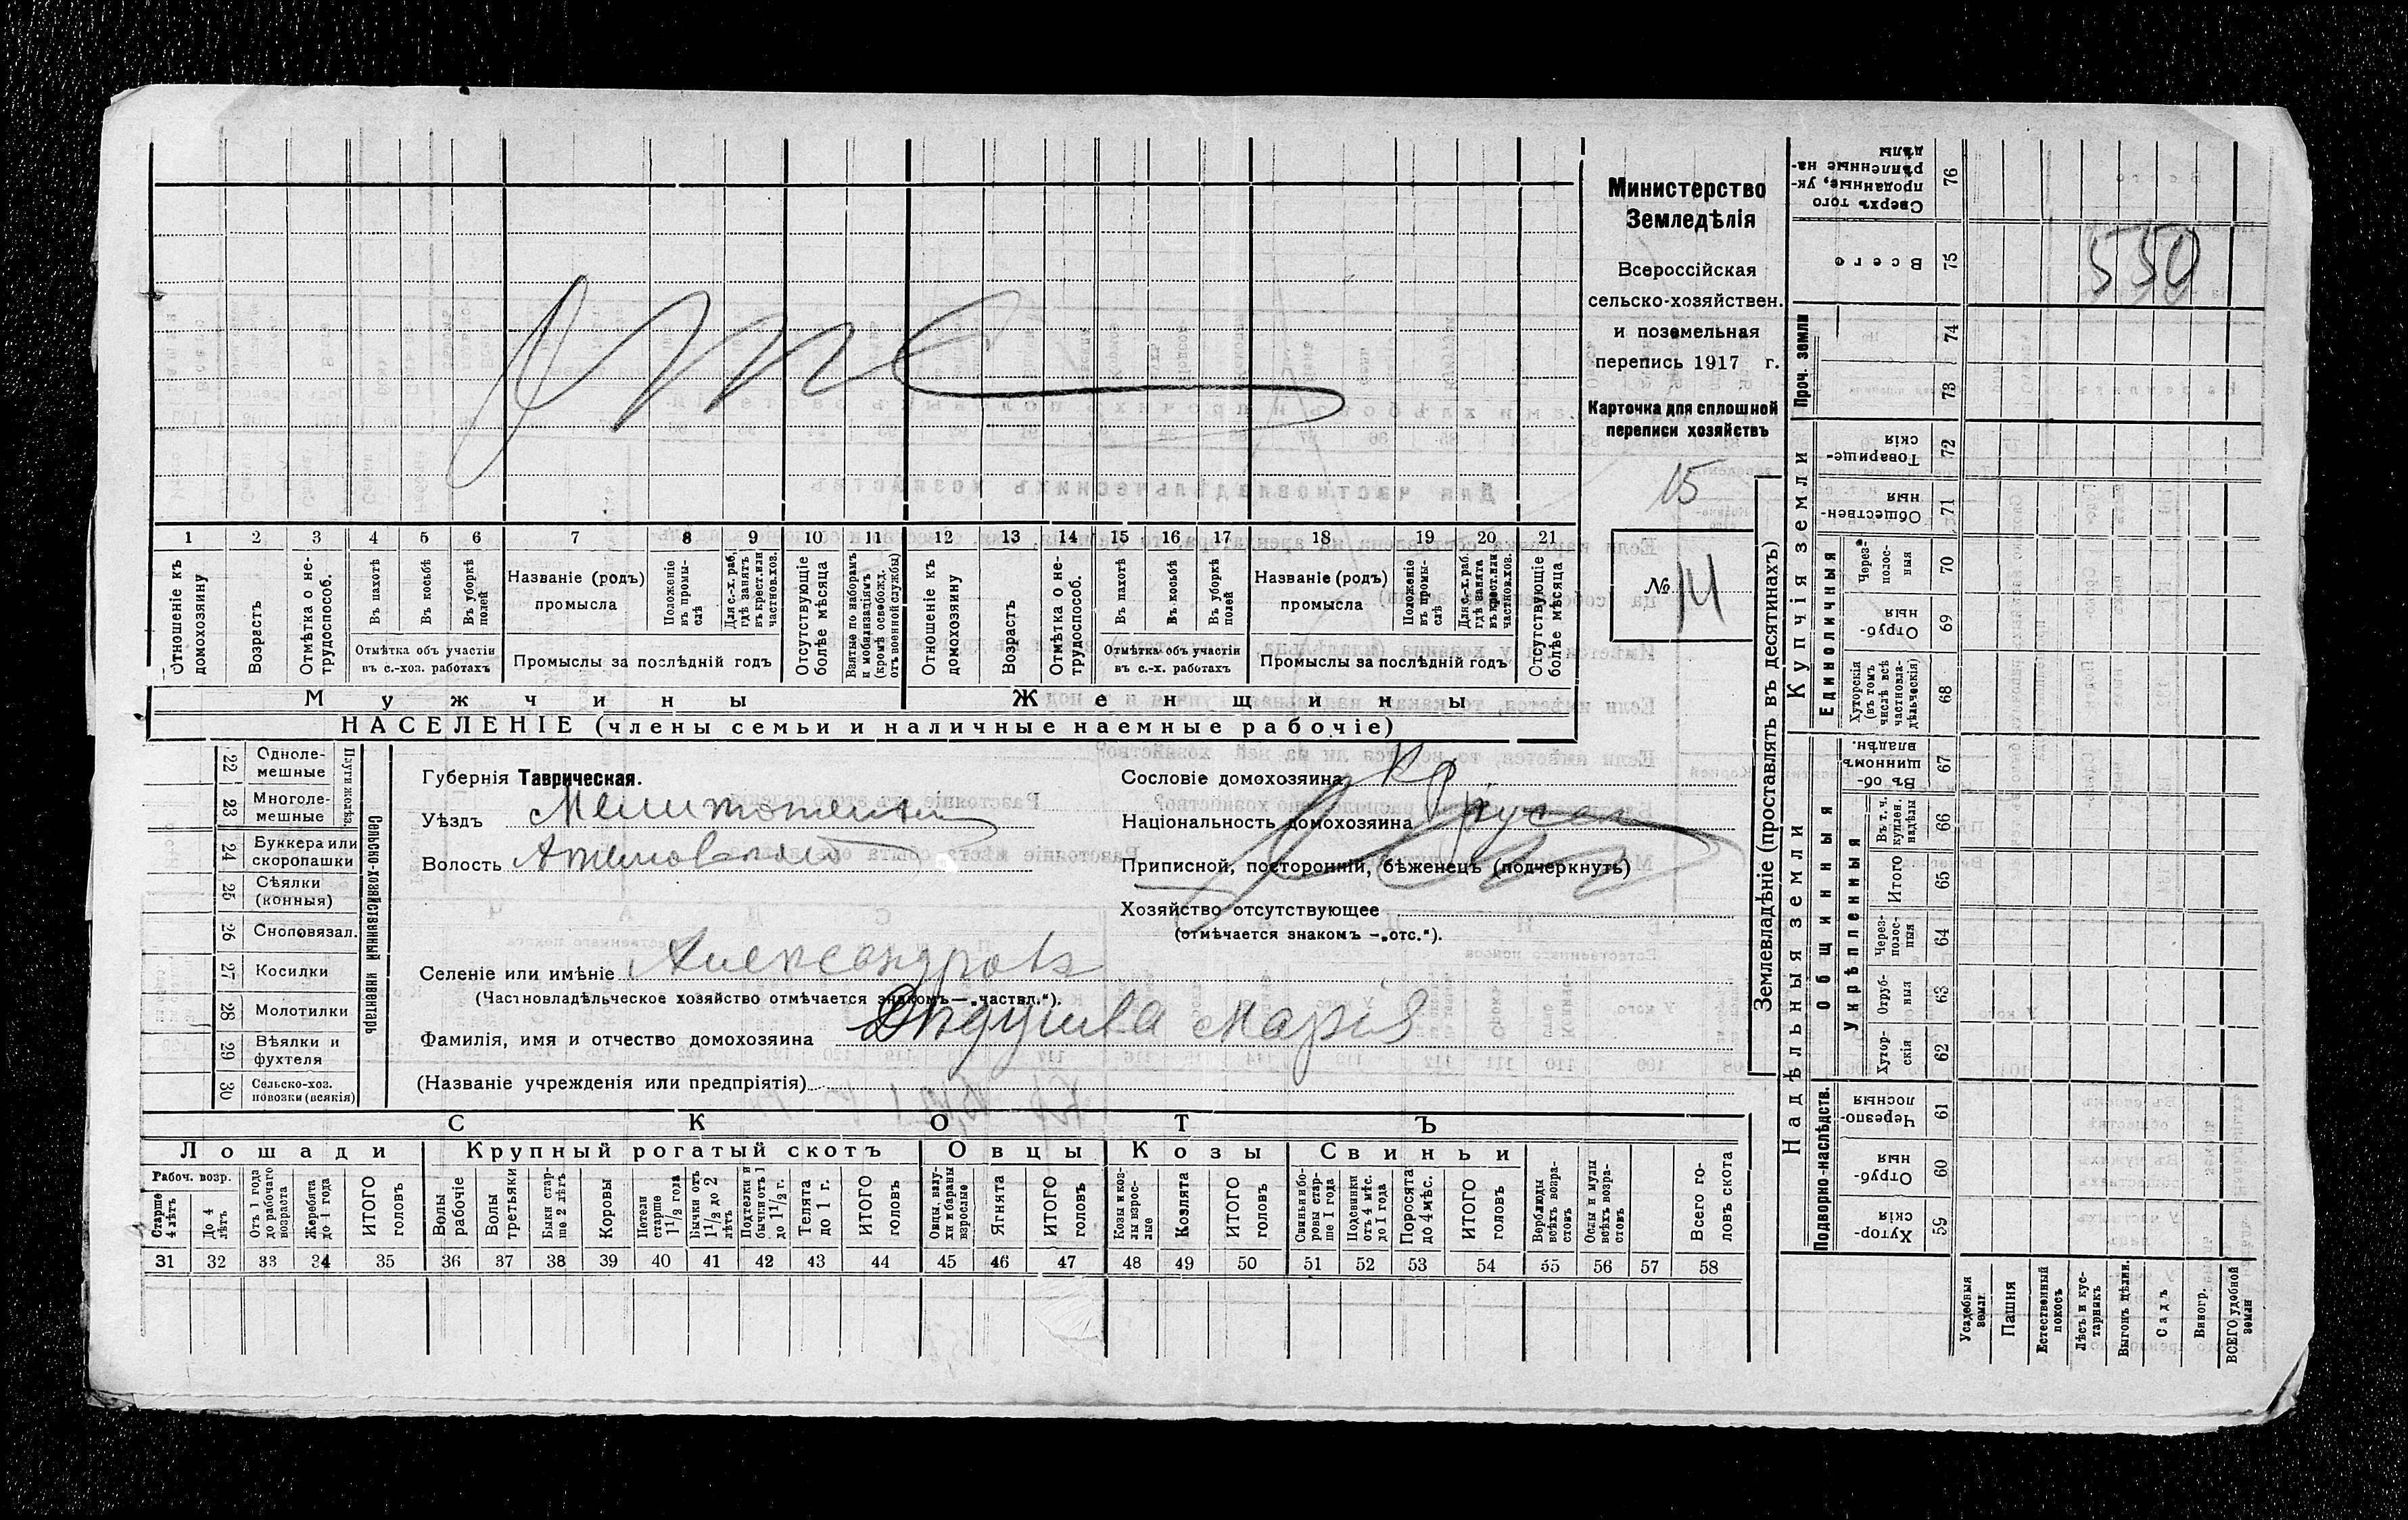 Отс
1 2 3 4 5 6 7 8 9 10 11 12 13 14 15 16 17 18 19 20 21
Отношеніе къ домохозяину
Возрастъ
Отмѣтка о не-трудоспособ.
Въ пахотѣ
Въ косьбѣ
Въ уборкѣ полей
Отмѣтка объ участіи
въ с.-хоз. работахъ
Названіе (родъ)
промысла
Положеніе въ промы-слѣ
Для с.-х. раб, гдѣ занятъ въ крест. или частнов. хоз.
Промыслы за послѣдній годъ
Отсутствующіе болѣе мѣсяца
Взятые по наборамъ и мобилизаціямъ (кромѣ освобожд. отъ военной службы)
Отношеніе къ домохозяину
Возрастъ
Отмѣтка о не-трудоспособ.
Въ пахотѣ
Въ косьбѣ
Въ уборкѣ полей
Отмѣтка объ участіи
въ с.-х. работахъ
Названіе (родъ)
промысла
Положеніе въ промы-слѣ
Для с.-х. раб. гдѣ занята въ крест. или частнов. хоз.
Промыслы за послѣдній годъ
Отсутствующіе болѣе мѣсяца
Мужчины
Женщины
НАСЕЛЕНІЕ (члены семьи и наличные наемные рабочіе)
Министерство
Земледѣлія
Всероссійская
сельско-хозяйствен.
и поземельная
перепись 1917 г.
Карточка для сплошной
переписи хозяйствъ
15
№ 14
Сельско-хозяйственный инвентарь
22 Одноле-мешные
23 Многоле-мешные
24 Буккера или скоропашки
25 Сѣялки (конныя)
26 Сноповязал.
27 Косилки
28 Молотилки
29 Вѣялки и фухтеля
30 Сельско-хоз. повозки (всякія)
Губернія Таврическая.
Уѣздъ
Волость
Селеніе или имѣніе Александровъ
(Частновладѣльческое хозяйство отмѣчается знакомъ—„частвл.“).
Фамилія, имя и отчество домохозяина Марія
(Названіе учрежденія или предпріятія)
Сословіе домохозяина Кр
Національность домохозяина русск
Приписной, посторонній, бѣженецъ (подчеркнуть)
Хозяйство отсутствующее
(отмѣчается знакомъ —„отс.“).
СКОТЪ
Лошади Крупный рогатый скотъ Овцы Козы Свиньи
Рабоч. возр.
Старше 4 лѣтъ
До 4 лѣтъ
Отъ 1 года до рабочаго возраста
Жеребята до 1 года
ИТОГО головъ
Волы рабочіе
Волы третьяки
Быки стар-ше 2 лѣтъ
Коровы
Нетели старше 1 1/2 года
Бычки отъ 1 1/2 до 2 лѣтъ
Подтелки и бычки отъ 1 до 1 1/2 г.
Телята до 1 г.
ИТОГО головъ
Овцы, валу-хи и бараны взрослые
Ягнята
ИТОГО головъ
Козы и коз-лы взрос-лые
Козлята
ИТОГО головъ
Свиньи и бо-ровы стар-ше 1 года
Подсвинки отъ 4 мѣс. до 1 года
Поросята до 4 мѣс.
ИТОГО головъ
Верблюды всѣхъ возра-стовъ
Ослы и мулы всѣхъ возра-стовъ
Всего го-ловъ скота
31 32 33 34 35 36 37 38 39 40 41 42 43 44 45 46 47 48 49 50 51 52 53 54 55 56 57 58
Землевладѣніе (проставлять въ десятинахъ)
Надѣльныя земли
Купчія земли
Проч. земли
Подворно-наслѣдств.
Общинныя
Укрѣпленныя
Единоличныя
Хутор-скія 59
Отруб-ныя 60
Черезпо-лосныя 61
Хутор-скія 62
Отруб-ныя 63
Через-полос-ныя 64
Итого 65
Въ т. ч. куплен. надѣлы 66
Въ об-щинномъ владѣн. 67
Хуторскія (въ томъ числѣ всѣ частновла-дѣльческія) 68
Отруб-ныя 69
Через-полос-ныя 70
Обществен-ныя 71
Товарище-скія 72
73
74
Всего 75
Сверхъ того проданные, ук-рѣпленные на-дѣлы 76
550
Усадебныя земли
Пашня
Естественный покосъ
Лѣсъ и кус-тарникъ
Выгонъ цѣлин.
Садъ
Виногр.
ВСЕГО удобной земли